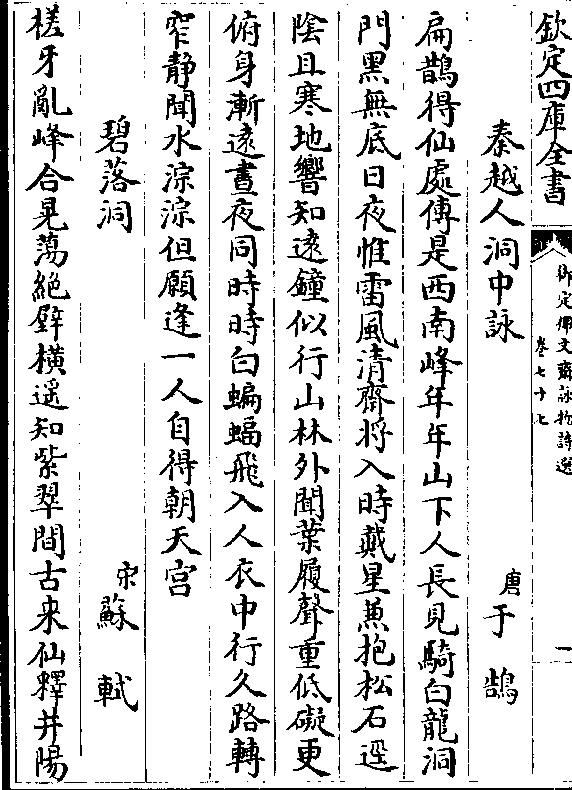 欽定四庫全書
御定佩文齋詠物詩選
卷七十七
一
秦越人洞中詠
唐于鵠
扁鵲得仙處傳是西南峰年年山下人長見騎白龍洞
門黑無底日夜惟雷風清齋将入時戴星兼抱松石逕
陰且寒地響知遠鐘似行山林外聞葉履聲重低礙更
俯身漸遠晝夜同時時白蝙蝠飛入人衣中行久路轉
窄静聞水淙淙但願逢一人自得朝天宮
碧落洞
宋蘇軾
槎牙亂峰合晃蕩絶壁橫遥知紫翠間古来仙釋并陽